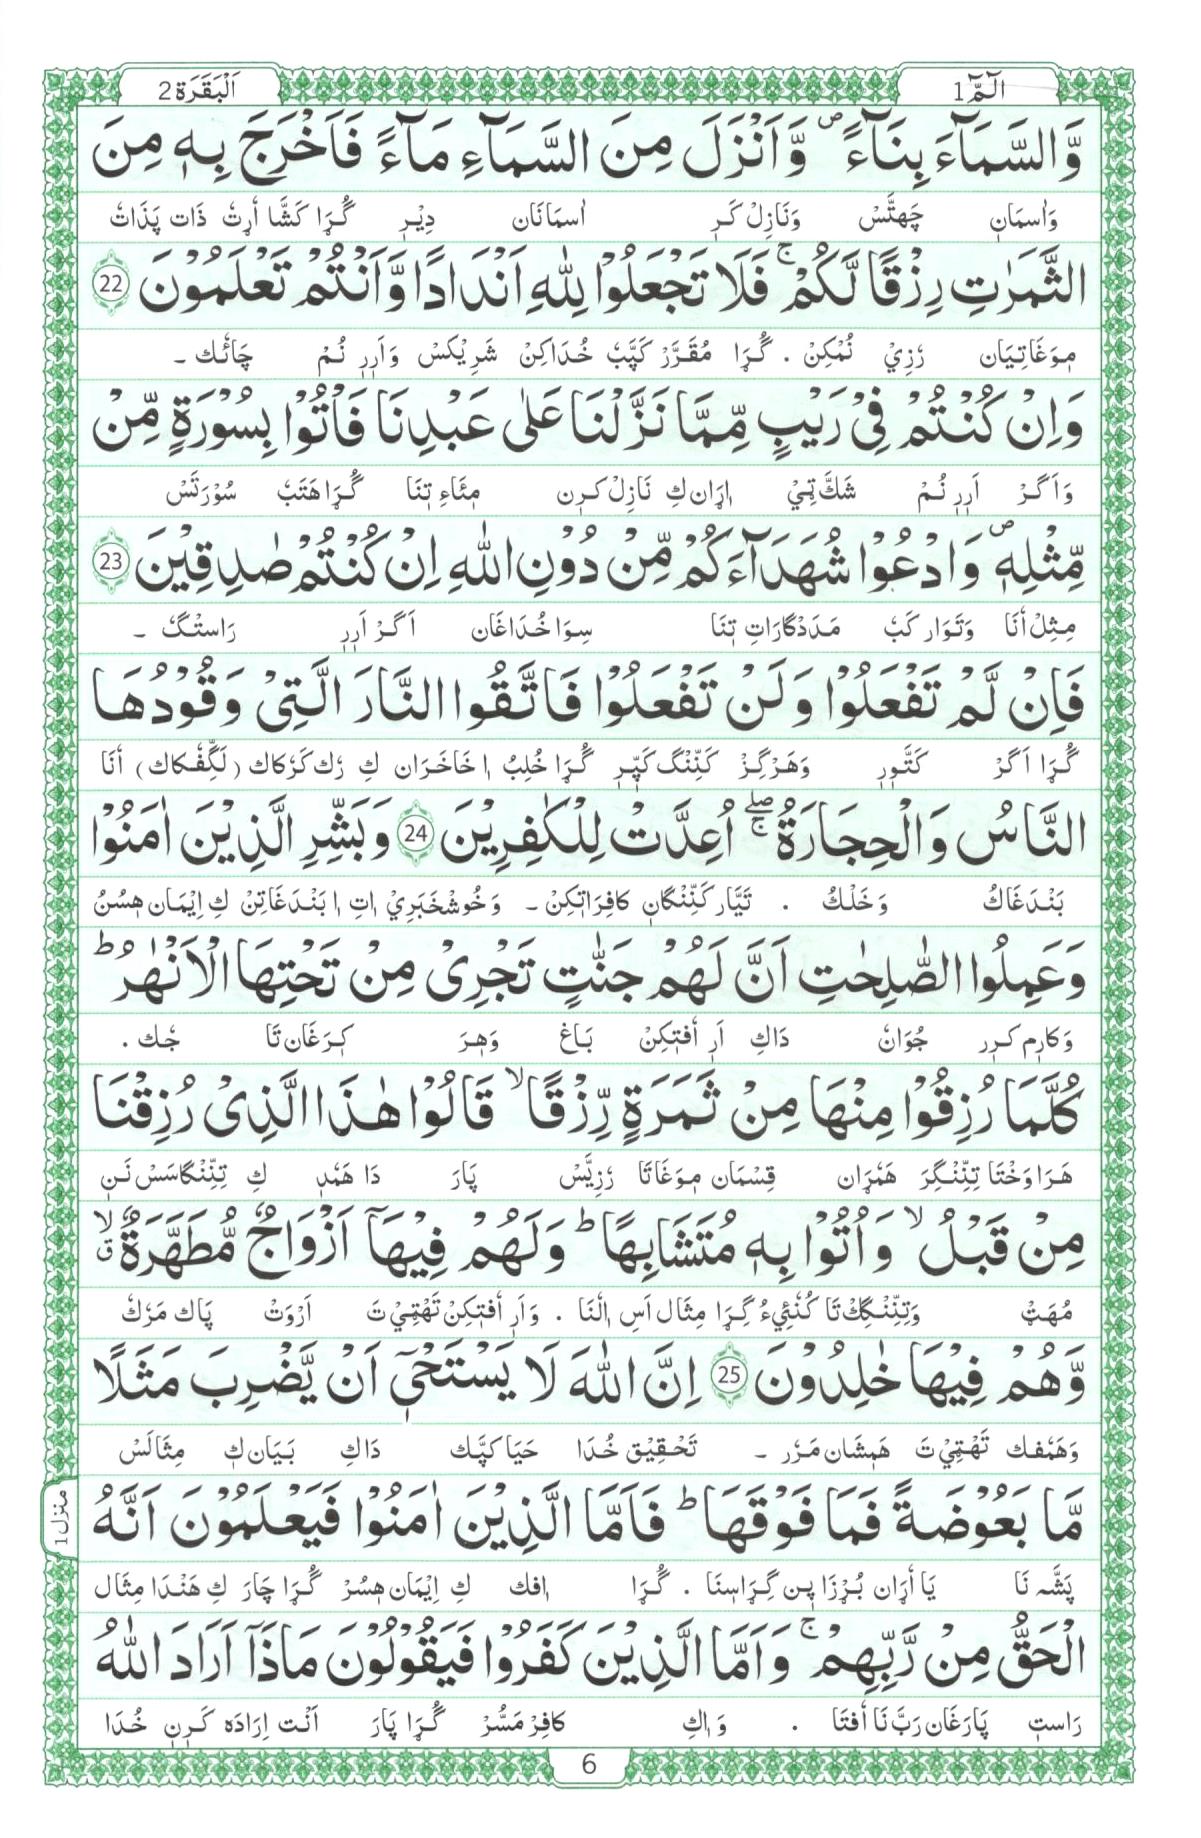 اَلْبَقَرَة 2
الٓمّٓ 1
وَّالسَّمَآءَ بِنَآءً ۪ وَّاَنْزَلَ مِنَ السَّمَآءِ مَآءً فَاَخْرَجَ بِهٖ مِنَ
وَاسمَان چَھتَّسْ وَنَازِلْ کَرِ اسمَانَان دِیْرِ گُرَا کَشَّا اُرٹ ذَات پَذَاتْ
الثَّمَرٰتِ رِزْقًا لَّكُمْ ۚ فَلَا تَجْعَلُوْا لِلّٰهِ اَنْدَادًا وَّاَنْتُمْ تَعْلَمُوْنَ 22
مِوَغَاتِیَان رُزِیْ نُمْکِنْ . گُرَا مُقَرَّرْ کَپَّبْ خُدَاکِنْ شَرِیْکَسْ وَاَرِرِ نُمْ چَائِک ۔
وَاِنْ كُنْتُمْ فِیْ رَیْبٍ مِّمَّا نَزَّلْنَا عَلٰى عَبْدِنَا فَاْتُوْا بِسُوْرَةٍ مِّنْ
وَاَگَرْ اَرِرِ نُمْ شَکَّ تِیْ اِرَان کِ نَازِلْ کَرِن مِنَاءِ تِنَا گُرَا ھَتَبْ سُوْرَتَسْ
مِّثْلِهٖ ۪ وَادْعُوْا شُهَدَآءَكُمْ مِّنْ دُوْنِ اللّٰهِ اِنْ كُنْتُمْ صٰدِقِیْنَ 23
مِثِلْ اُنَا وَتَوَار کَبْ مَدَدْگَارَاتِ تِنَا سِوَا خُدَاغَان اَگَرْ اَرِرِ رَاسْتْگ ۔
فَاِنْ لَّمْ تَفْعَلُوْا وَلَنْ تَفْعَلُوْا فَاتَّقُوا النَّارَ الَّتِیْ وَقُوْدُهَا
گُرَا اَگَرْ کَتَّوْرِ وَھَرْگِزْ کَنِّنْگ کَپَّرِ گُرَا خُلِبْ ا خَاخَرَان کِ رُک کَرْکَاک (لَگِّفْکَاک) اُنَا
النَّاسُ وَالْحِجَارَةُ ۖۚ اُعِدَّتْ لِلْكٰفِرِیْنَ 24 وَبَشِّرِ الَّذِیْنَ اٰمَنُوْا
بَنْدَغَاکْ وَخَلْکْ . تَیَّار کَنِّنْگَان کَافِرَاتِکِنْ ۔ وَخُوشْخَبَرِیْ اِتِ ا بَنْدَغَاتِنْ کِ اِیْمَان ھِسُنْ
وَعَمِلُوا الصّٰلِحٰتِ اَنَّ لَهُمْ جَنّٰتٍ تَجْرِیْ مِنْ تَحْتِهَا الْاَنْهٰرُ ؕ
وَکَارِم کَرِرِ جُوَانْ دَاکِ اَرِ اُفْتِکِنْ بَاغ وَھِرَ کِرَغَان تَا جُک .
كُلَّمَا رُزِقُوْا مِنْهَا مِنْ ثَمَرَةٍ رِّزْقًا ۙ قَالُوْا هٰذَا الَّذِیْ رُزِقْنَا
ھَرَاوَخْتَا تِنِّنْگِرَ ھَمْرَان قِسْمَان مِوَغَاتَا رُزِیَّسْ پَارَ دَا ھَمْد کِ تِنِّنْگَاسَسْ نَن
مِنْ قَبْلُ ۙ وَاُتُوْا بِهٖ مُتَشَابِهًا ؕ وَلَهُمْ فِیْهَاۤ اَزْوَاجٌ مُّطَهَّرَةٌ ۙۗ
مُھَتْ وَتِنِّنْگِکْ تَا کُنْئِیْ گِرَا مِثَال اَسِ اِلْنَا . وَاَرِ اُفْتِکِنْ تَھْتِیْ تَ اَرْوَتْ پَاک مَرَکْ
وَّهُمْ فِیْهَا خٰلِدُوْنَ 25 اِنَّ اللّٰهَ لَا یَسْتَحْیٖۤ اَنْ یَّضْرِبَ مَثَلًا
وَھَمْفک تَھْتِیْ تَ ھَمِشَان مَرَر ۔ تَحْقِیْق خُدَا حَیَا کَپَّک دَاکِ بَیَان کِ مِثَالَسْ
مَّا بَعُوْضَةً فَمَا فَوْقَهَا ؕ فَاَمَّا الَّذِیْنَ اٰمَنُوْا فَیَعْلَمُوْنَ اَنَّهُ
پَشَّہ نَا یَا اُرَان بُرْزَا پِن گِرَاسِنَا . گُرَا اِفک کِ اِیْمَان ھِسُرْ گُرَا چَارَ کِ ھَنْدَا مِثَال
الْحَقُّ مِنْ رَّبِّهِمْ ۚ وَاَمَّا الَّذِیْنَ كَفَرُوْا فَیَقُوْلُوْنَ مَاذَاۤ اَرَادَ اللّٰهُ
رَاست پَارَغَان رَبَّ نَا اُفْتَا . وَاِک کَافِرْ مَسُّرْ گُرَا پَارَ اَنْت اِرَادَہ کَرِن خُدَا
منزل 1
6